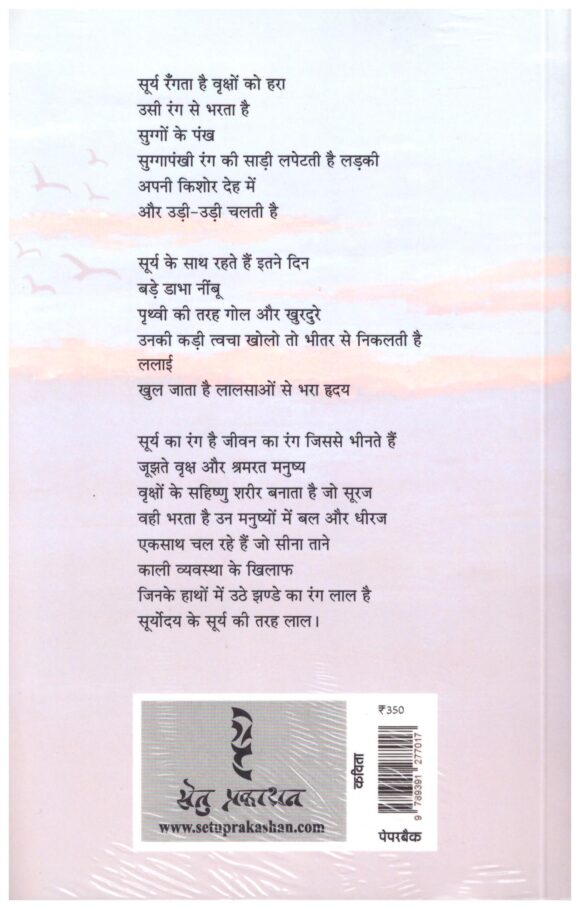 सूर्य रँगता है वृक्षों को हरा
उसी रंग से भरता है
सुग्गों के पंख
सुग्गापंखी रंग की साड़ी लपेटती है लड़की
अपनी किशोर देह में
और उड़ी-उड़ी चलती है
सूर्य के साथ रहते हैं इतने दिन
बड़े डाभा नींबू
पृथ्वी की तरह गोल और खुरदुरे
उनकी कड़ी त्वचा खोलो तो भीतर से निकलती है
ललाई
खुल जाता है लालसाओं से भरा हृदय
सूर्य का रंग है जीवन का रंग जिससे भीनते हैं
जूझते वृक्ष और श्रमरत मनुष्य
वृक्षों के सहिष्णु शरीर बनाता है जो सूरज
वही भरता है उन मनुष्यों में बल और धीरज
एकसाथ चल रहे हैं जो सीना ताने
काली व्यवस्था के खिलाफ
जिनके हाथों में उठे झण्डे का रंग लाल है
सूर्योदय के सूर्य की तरह लाल।
सेतु प्रकाशन
www.setuprakashan.com
कविता
₹350
9 789391 277017
पेपरबैक